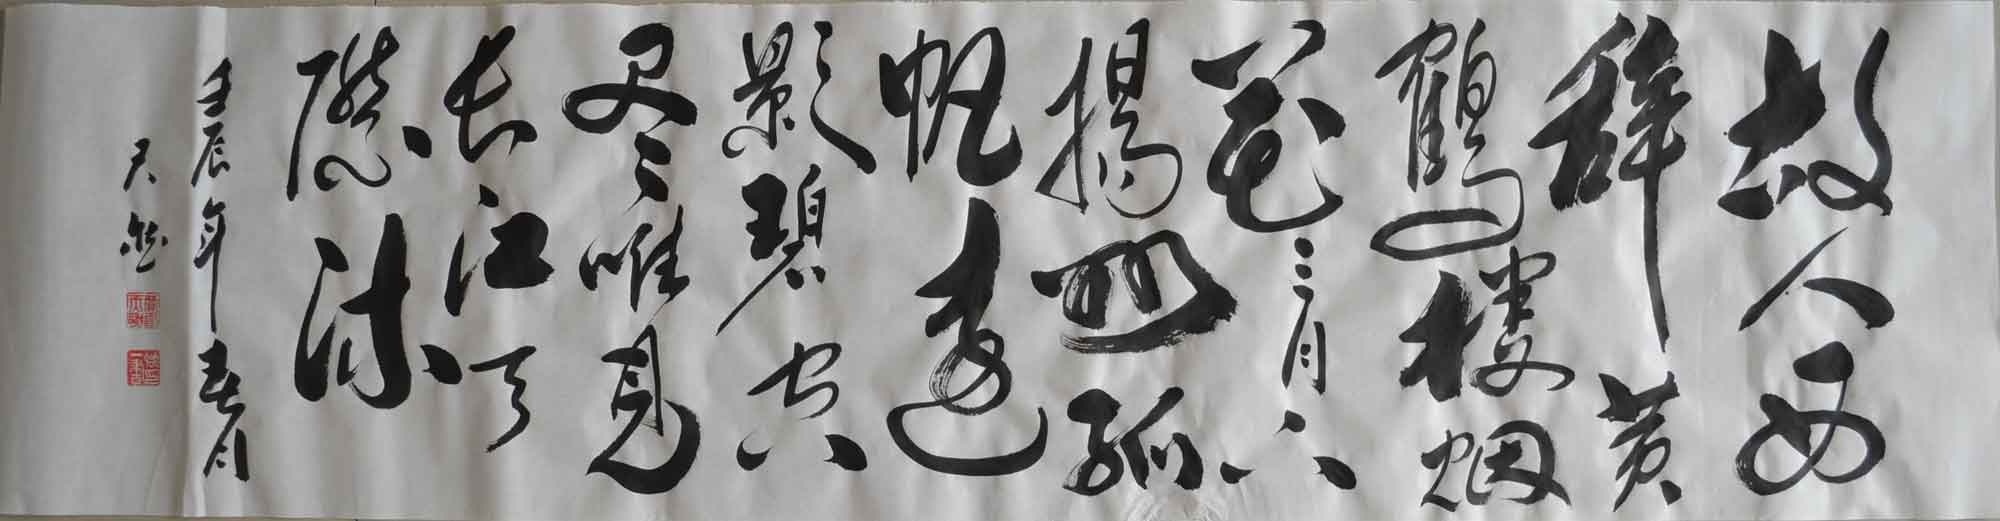 故人西
辞黄
鶴楼烟
花三月下
揚州孤
帆遠
影碧空
尽唯見
长江天
際流
壬辰年春月